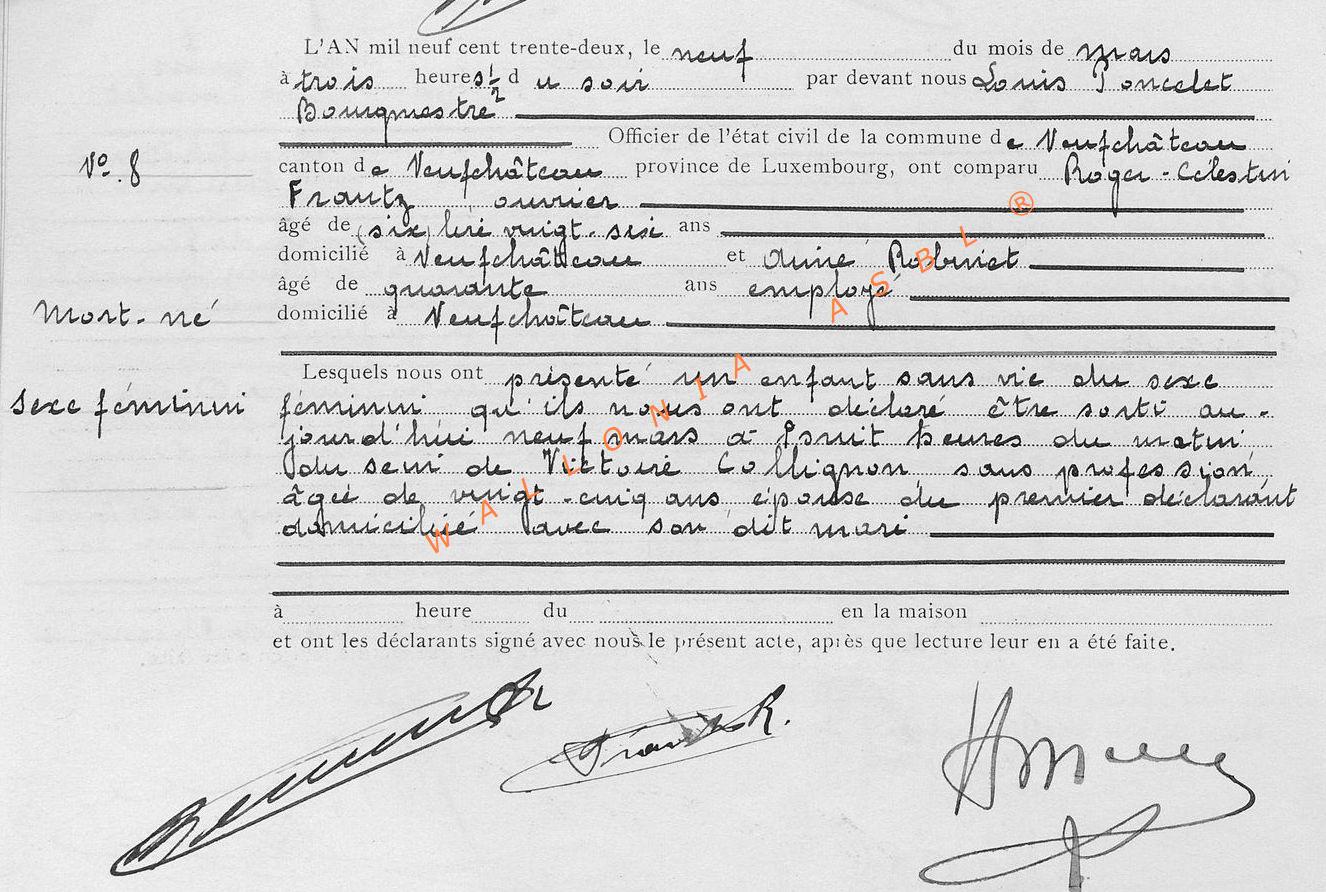 L'AN mil neuf cent trente-deux, le neuf du mois de mars
à trois heures ½ du soir par devant nous Louis Poncelet
Bourgmestre
Officier de l'état civil de la commune de Neufchâteau
N° 8
canton de Neufchâteau province de Luxembourg, ont comparu Roger-Célestin
Frantz ouvrier
âgé de (six) liré vingt-six ans
domicilié à Neufchâteau et Aimé Robinet
âgé de quarante ans employé
Mort-né
domicilié à Neufchâteau
Lesquels nous ont présenté un enfant sans vie du sexe
Sexe féminin
féminin qu'ils nous ont déclaré être sorti au-
jourd'hui neuf mars à huit heures du matin
du sein de Victoire Collignon sans profession
âgée de vingt-cinq ans épouse du premier déclarant
domiciliée avec son dit mari
à heure du en la maison
et ont les déclarants signé avec nous le présent acte, après que lecture leur en a été faite.
Frantz R.
WALLONIA ASBL ®